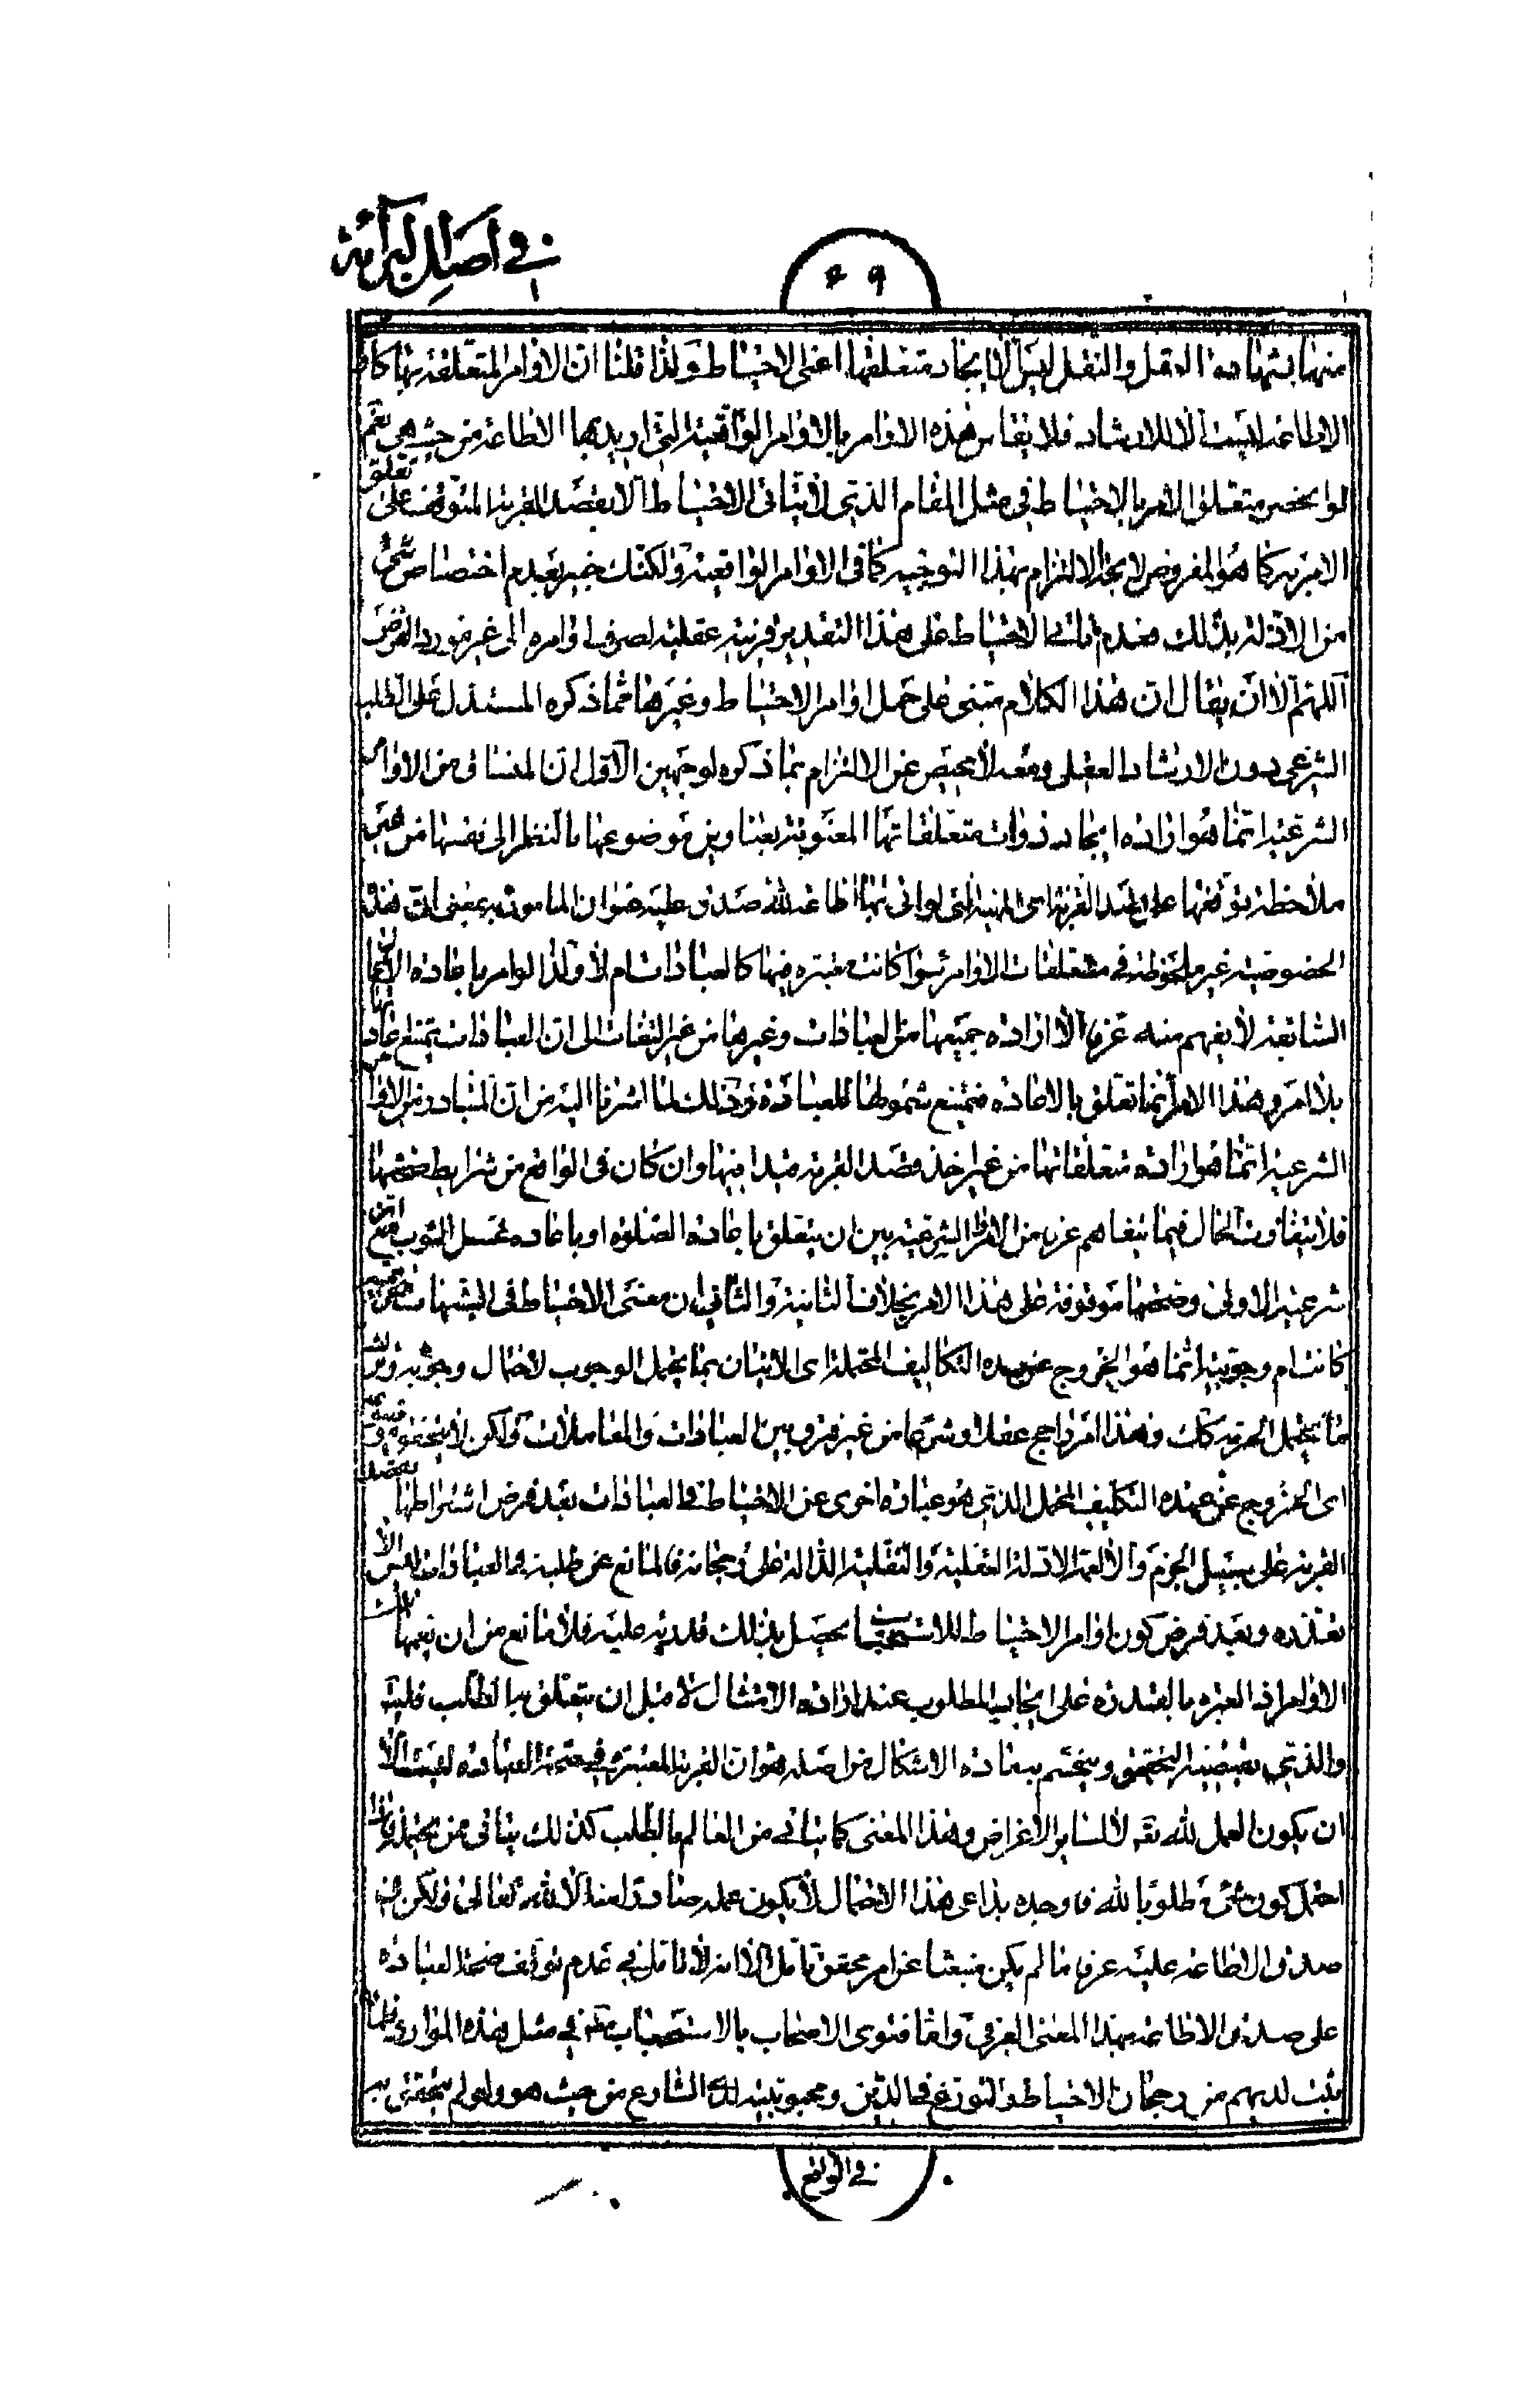 في اصل البرائة
٤٩
منها بشهادة العقل والنقل ليس الا ايجاد متعلقها اعنى الاحتياط ولذا قلنا ان الاوامر المتعلقة بها كاوامر
الاطاعة ليست الا للارشاد فلا يقاس هذه الاوامر بالاوامر الواقعية التي اريد بها الاطاعة من حيث هي نعم
لو انحصر متعلق الامر بالاحتياط في مثل المقام الذي لا يتأتى الاحتياط الا بقصد القربة المتوقف على تعلق
الامر به كما هو المفروض لا يجد الالتزام بهذا التوجيه كما في الاوامر الواقعية ولكنك خبير بعدم اختصاص شئ
من الادلة بذلك فعدم تأتى الاحتياط على هذا التقدير قرينة عقلية لصرف اوامره الى غير مورد الفرض
اللهم الا ان يقال ان هذا الكلام مبنى على حمل اوامر الاحتياط وغيرها مما ذكره المستدل على الطلب
الشرعي دون الارشاد العقلي ومعه لا محيص عن الالتزام بما ذكره لوجهين الاول ان المنساق من الاوامر
الشرعية انما هو ارادة ايجاد ذوات متعلقاتها المعنونة بعناوين موضوعها بالنظر الى نفسها من غير
ملاحظة توقفها على قصد القربة اى الهيئة التى لو اتى بها اطاعة لله صدق عليه عنوان المامور به بمعنى ان هذه
الخصوصية غير ملحوظة في متعلقات الاوامر سواء كانت معتبرة فيها كالعبادات ام لا ولذا لو امر باعادة الاعمال
السابقة لا يفهم منه عرفا الا ارادة جميعها من العبادات وغيرها من غير التفات الى ان العبادات يمتنع اعادتها
بلا امر وهذا الامر انما تعلق بالاعادة فيمتنع شمولها للعبادة وذلك لما اشرنا اليه من ان المتبادر من الاوامر
الشرعية انما هو ارادة متعلقاتها من غير اخذ قصد القربة قيدا فيها وان كان في الواقع من شرايط صحتها
فلا يتفاوت الحال فيما يتفاهم عرفا من الامر الشرعية بين ان يتعلق باعادة الصلوة او باعادة غسل الثوب مع ان
شرعية الاولى وصحتها موقوفة على هذا الامر بخلاف الثانية والثاني ان معنى الاحتياط في الشبهات تحريمية
كانت ام وجوبية انما هو الخروج عن عهدة التكاليف المحتملة اى الاتيان بما يحتمل الوجوب لاحتمال وجوبه وترك
ما يحتمل الحرمة كك وهذا امر راجح عقلا وشرعا من غير فرق بين العبادات والمعاملات ولكن لا يتحقق
اى الخروج عن عهدة التكليف المحتمل الذي هو عبارة اخرى عن الاحتياط في العبادات بعد فرض اشتراطها بقصد
القربة على سبيل الجزم والادلة العقلية والنقلية الدالة على رجحانه فالمانع عن طلبه في العبادات ليس الا
تعذره وبعد فرض كون اوامر الاحتياط للاستحباب يحصل بذلك قدرته عليه فلا مانع من ان يعمها تلك
الاوامر اذ العبرة بالقدرة على ايجاب المطلوب عند ارادة الامتثال لا قبل ان يتعلق به الطلب فليتأمل
والذي يقتضيه التحقيق وينحسم به مادة الاشكال من اصله هو ان القربة المعتبرة في صحة العبادة ليست الا
ان يكون العمل لله تعالى لا لساير الاغراض وهذا المعنى كما يتأتى من العالم بالطلب كذلك يتأتى ممن يحتمله فاذا
احتمل كون شئ مطلوبا لله فاوجده بداعى هذا الاحتمال لا يكون عمله صادرا منه الا لله تعالى ولكن في
صدق الاطاعة عليه عرفا ما لم يكن منبعثا عن امر محقق تأمل الا انه لا تأمل في عدم توقف صحة العبادة
على صدق الاطاعة بهذا المعنى العرفى واما فتوى الاصحاب بالاستحباب في مثل هذه الموارد فلما
ثبت لديهم من رجحان الاحتياط والتورع في الدين ومحبوبيته لدى الشارع من حيث هو ولو لم يتحقق به
في الواقع